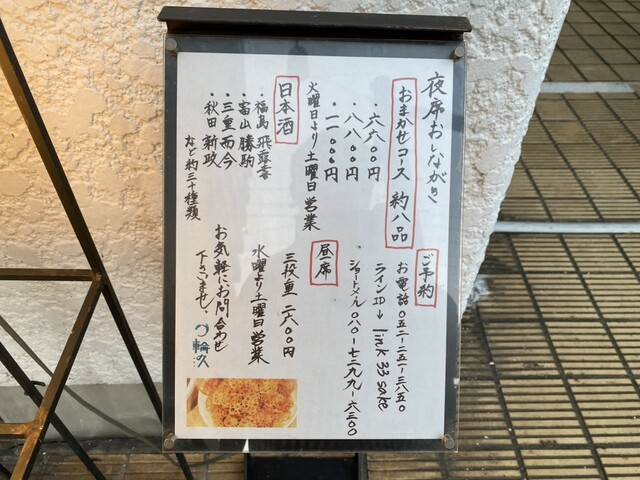 夜席おしながき
おまかせコース 約八品
・六六〇〇円
・八八〇〇円
・一一〇〇〇円
火曜日より土曜日営業
日本酒
・福島 飛露喜
・富山 勝駒
・三重 而今
・秋田 新政
など約三十種類
ご予約
お電話〇五二-二五一-三八五〇
ラインID→link33sake
ショートメール〇八〇-七二九九-六三〇〇
昼席
三段重 二八〇〇円
水曜より土曜日営業
お気軽にお問い合わせ
下さいませ。
輪久